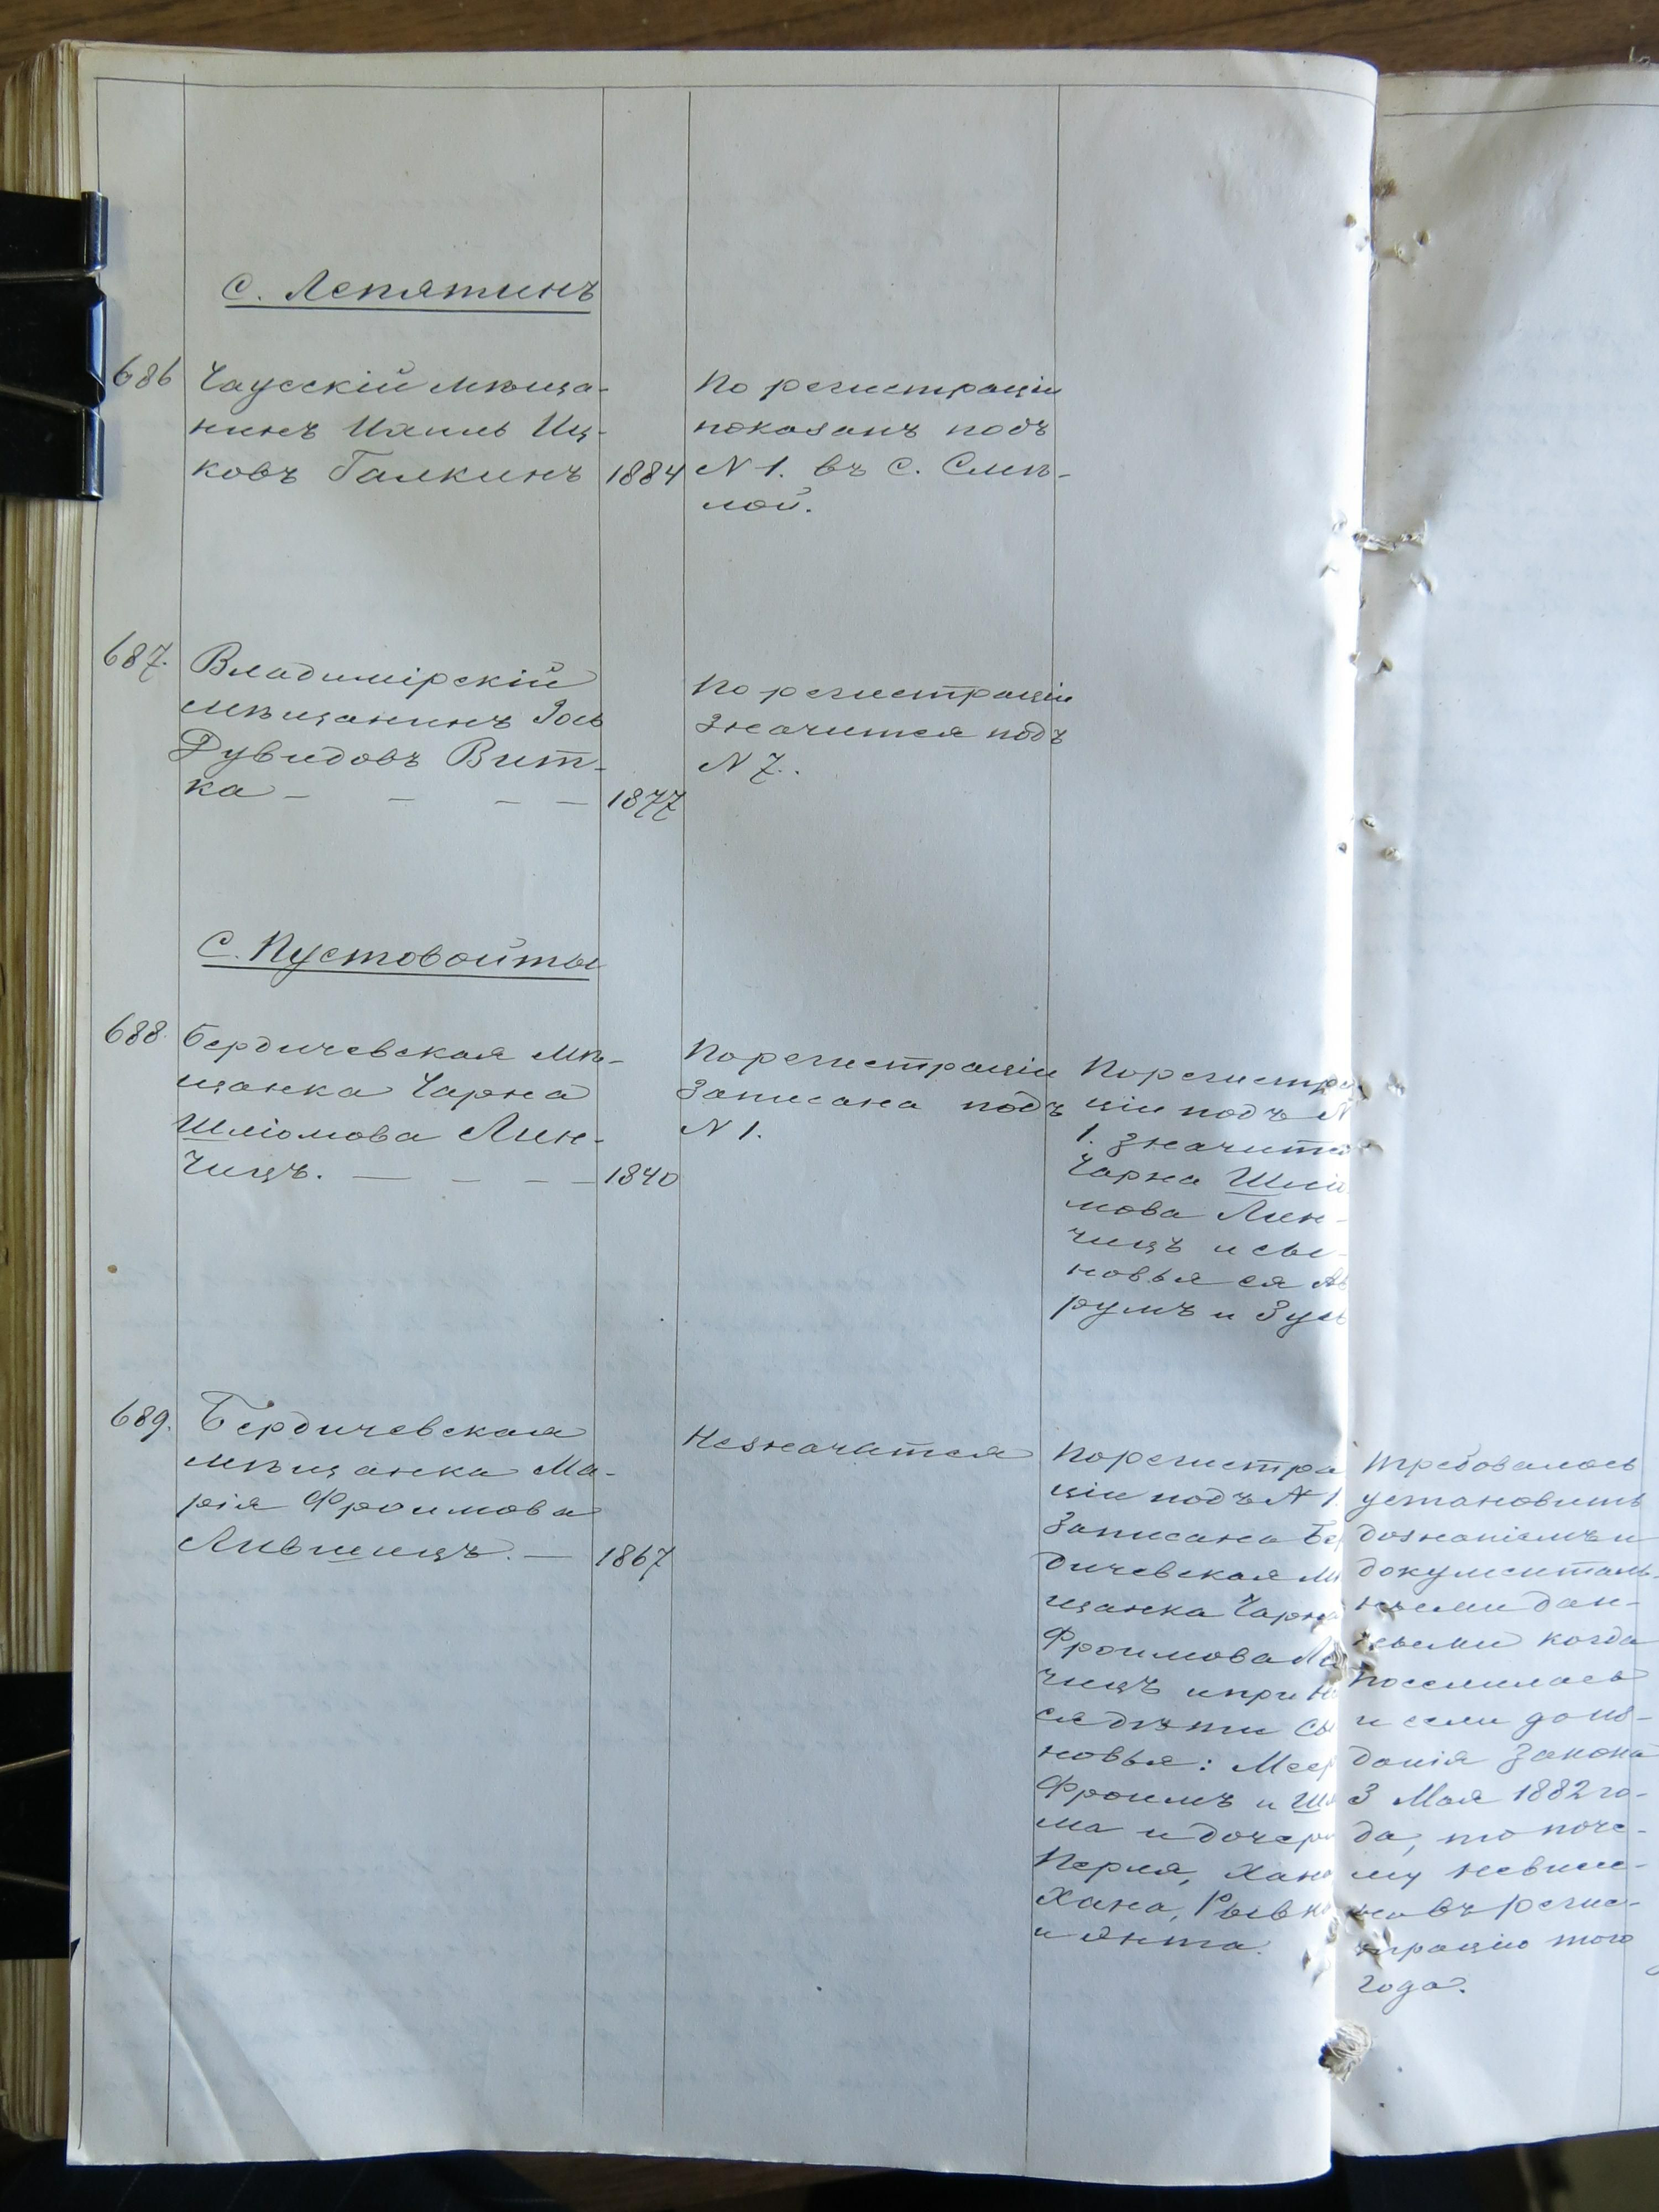 С. Лепятинъ
686 Чаусскій мѣща-
нинъ Ихиль Иц-
ковъ Галкинъ 1884
По регистраціи
показанъ подъ
N 1. въ С. Смѣ-
лой.
687. Владимірскій
мѣщанинъ Іось
Дувидовъ Вит-
ка — — — — 1877
По регистраціи
значится подъ
N 7.
С. Пустовойты
688. Бердичевская мѣ-
щанка Чарна
Шліомова Лин-
чицъ. — — — — 1840
По регистраціи
записана подъ
N 1.
По регистра
ціи подъ N
1. значит
Чарна Шліо
мова Лин-
чицъ и сы-
новья ея Ав
румъ и Зусь
689. Бердичевская
мѣщанка Ма-
рія Фроимова
Лившицъ. — 1867
Незначится
По регистра
ціи подъ N 1.
записана Бер
дичевская мѣ
щанка Чарна
Фроимова Ли
чицъ и при н
ея дѣти сы
новья: Меер
Фроимъ и Шл
ма и дочери
Перля, Хана
Хана, Рывк
и Ента.
Требовалось
установить
дознаніемъ и
документаль-
ными дан-
ными когда
поселилась
и если до из-
данія закона
3 Мая 1882 го-
да, то поче-
му невнесе-
на въ регис-
трацію того
года.